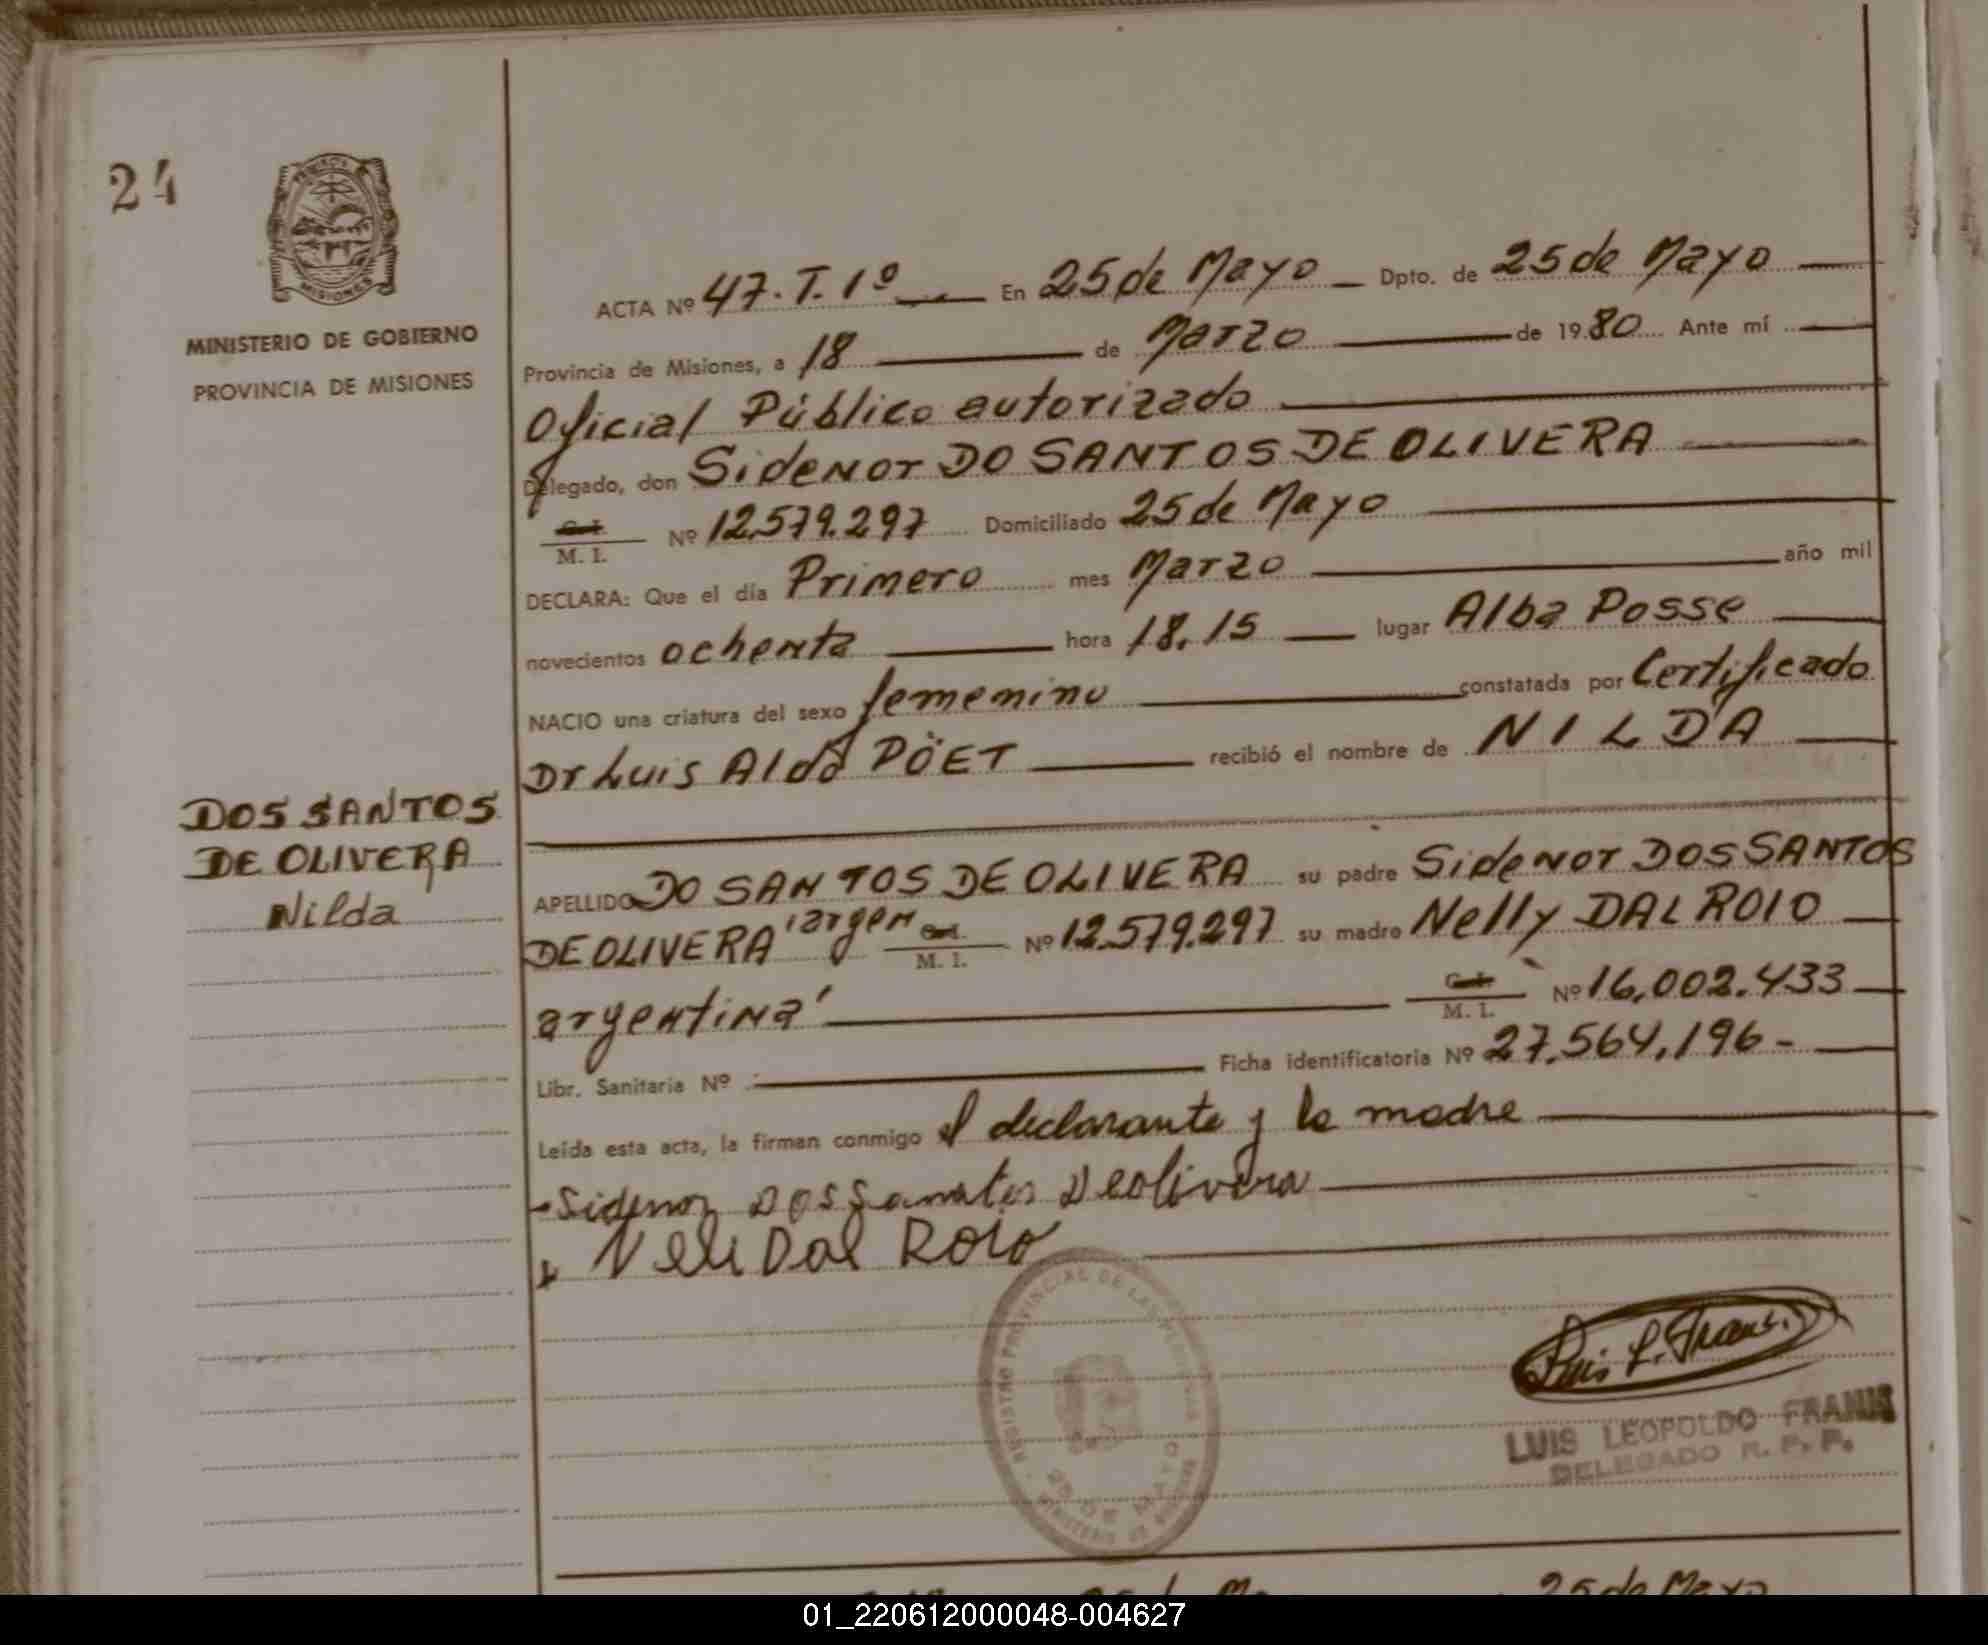 24
MISIONES
MINISTERIO DE GOBIERNO
PROVINCIA DE MISIONES
ACTA Nº 47. T. 1º En 25 de Mayo Dpto. de 25 de Mayo
Provincia de Misiones, a 18 de Marzo de 1980 Ante mí
Oficial Público autorizado
Delegado, don Sidenor DO SANTOS DE OLIVERA
C. I. M. I. Nº 12.579.297 Domiciliado 25 de Mayo
DECLARA: Que el día Primero mes Marzo año mil
novecientos ochenta hora 18.15 lugar Alba Posse
NACIO una criatura del sexo femenino constatada por Certificado
Dr Luis Aldo PÖET recibió el nombre de NILDA
DOS SANTOS
DE OLIVERA
Nilda
APELLIDO DO SANTOS DE OLIVERA su padre Sidenor DOS SANTOS
DE OLIVERA 'argen C. I. M. I. Nº 12.579.297 su madre Nelly DAL ROIO
argentina' C. I. M. I. Nº 16.002.433
Libr. Sanitaria Nº Ficha identificatoria Nº 27.564.196-
Leída esta acta, la firman conmigo el declarante y la madre
Sidenor DOS Sanntos Deolivera
Neli Dal Roio
REGISTRO PROVINCIAL DE LAS PERSONAS
25 DE MAYO
MINISTERIO DE GOBIERNO
Luis L. Frank
LUIS LEOPOLDO FRANK
DELEGADO R. P. P.
25 de Mayo 25 de Mayo
01_220612000048-004627